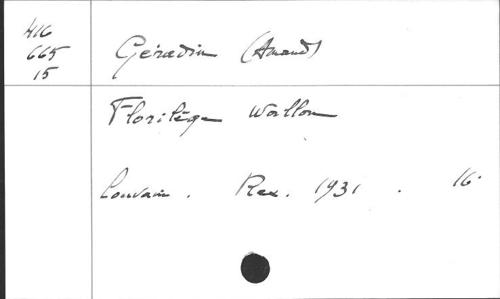 416
665
15
Gérardin (Amand)
Florilège Wallon
Louvain. Rex. 1931. 16°